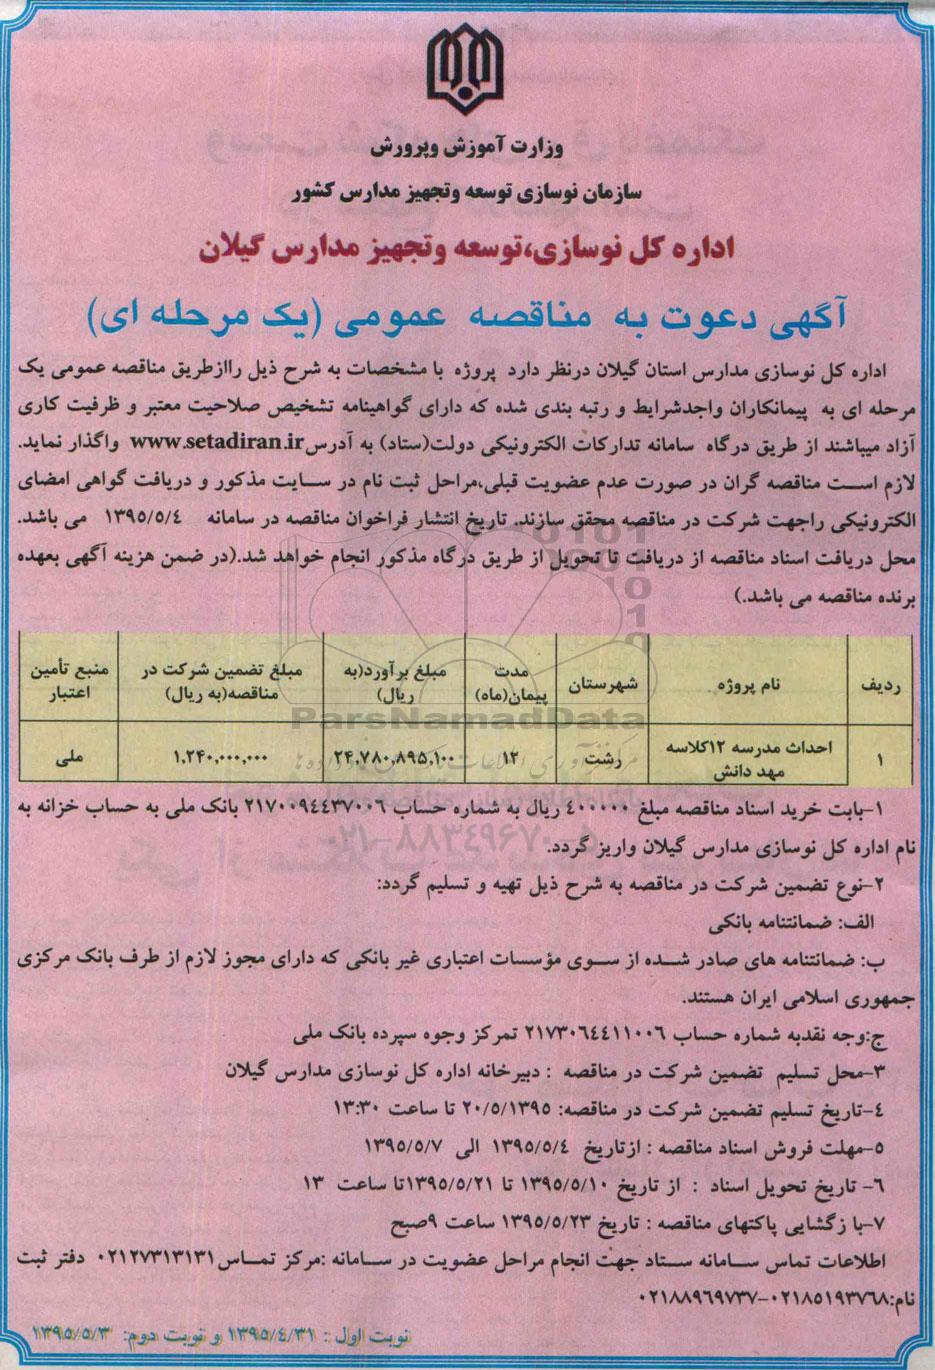 وزارت آموزش وپرورش
سازمان نوسازی توسعه وتجهیز مدارس کشور
اداره کل نوسازی،توسعه وتجهیز مدارس گیلان
آگهی دعوت به مناقصه عمومی (یک مرحله ای)
اداره کل نوسازی مدارس استان گیلان درنظر دارد پروژه با مشخصات به شرح ذیل راازطریق مناقصه عمومی یک
مرحله ای به پیمانکاران واجدشرایط و رتبه بندی شده که دارای گواهینامه تشخیص صلاحیت معتبر و ظرفیت کاری
آزاد میباشند از طریق درگاه سامانه تدارکات الکترونیکی دولت(ستاد) به آدرس www.setadiran.ir واگذار نماید.
لازم است مناقصه گران در صورت عدم عضویت قبلی،مراحل ثبت نام در سایت مذکور و دریافت گواهی امضای
الکترونیکی راجهت شرکت در مناقصه محقق سازند. تاریخ انتشار فراخوان مناقصه در سامانه ۱۳۹۵/۵/٤ می باشد.
محل دریافت اسناد مناقصه از دریافت تا تحویل از طریق درگاه مذکور انجام خواهد شد.(در ضمن هزینه آگهی بعهده
برنده مناقصه می باشد.)
ردیف نام پروژه شهرستان مدت پیمان(ماه) مبلغ برآورد(به ریال) مبلغ تضمین شرکت در مناقصه(به ریال) منبع تأمین اعتبار
۱ احداث مدرسه ۱۲کلاسه مهد دانش رشت ۱۲ ۲۴,۷۸۰,۸۹۵,۱۰۰ ۱,۲۴۰,۰۰۰,۰۰۰ ملی
ParsNamadData
۱-بابت خرید اسناد مناقصه مبلغ ٤۰۰۰۰۰ ریال به شماره حساب ۲۱۷۰۰۹٤٤۳۷۰۰٦ بانک ملی به حساب خزانه به
نام اداره کل نوسازی مدارس گیلان واریز گردد.
۲-نوع تضمین شرکت در مناقصه به شرح ذیل تهیه و تسلیم گردد:
الف: ضمانتنامه بانکی
ب: ضمانتنامه های صادر شده از سوی مؤسسات اعتباری غیر بانکی که دارای مجوز لازم از طرف بانک مرکزی
جمهوری اسلامی ایران هستند.
ج:وجه نقدبه شماره حساب ۲۱۷۳۰٦٤٤۱۱۰۰٦ تمرکز وجوه سپرده بانک ملی
۳-محل تسلیم تضمین شرکت در مناقصه : دبیرخانه اداره کل نوسازی مدارس گیلان
٤-تاریخ تسلیم تضمین شرکت در مناقصه: ۲۰/۵/۱۳۹۵ تا ساعت ۱۳:۳۰
۵-مهلت فروش اسناد مناقصه : ازتاریخ ۱۳۹۵/۵/٤ الی ۱۳۹۵/۵/۷
٦- تاریخ تحویل اسناد : از تاریخ ۱۳۹۵/۵/۱۰ تا ۱۳۹۵/۵/۲۱تا ساعت ۱۳
۷-با زگشایی پاکتهای مناقصه : تاریخ ۱۳۹۵/۵/۲۳ ساعت ۹صبح
اطلاعات تماس سامانه ستاد جهت انجام مراحل عضویت در سامانه :مرکز تماس۰۲۱۲۷۳۱۳۱۳۱ دفتر ثبت
نام:۰۲۱۸۵۱۹۳۷٦۸-۰۲۱۸۸۹٦۹۷۳۷
نوبت اول : ۱۳۹۵/٤/۳۱ و نوبت دوم: ۱۳۹۵/۵/۳